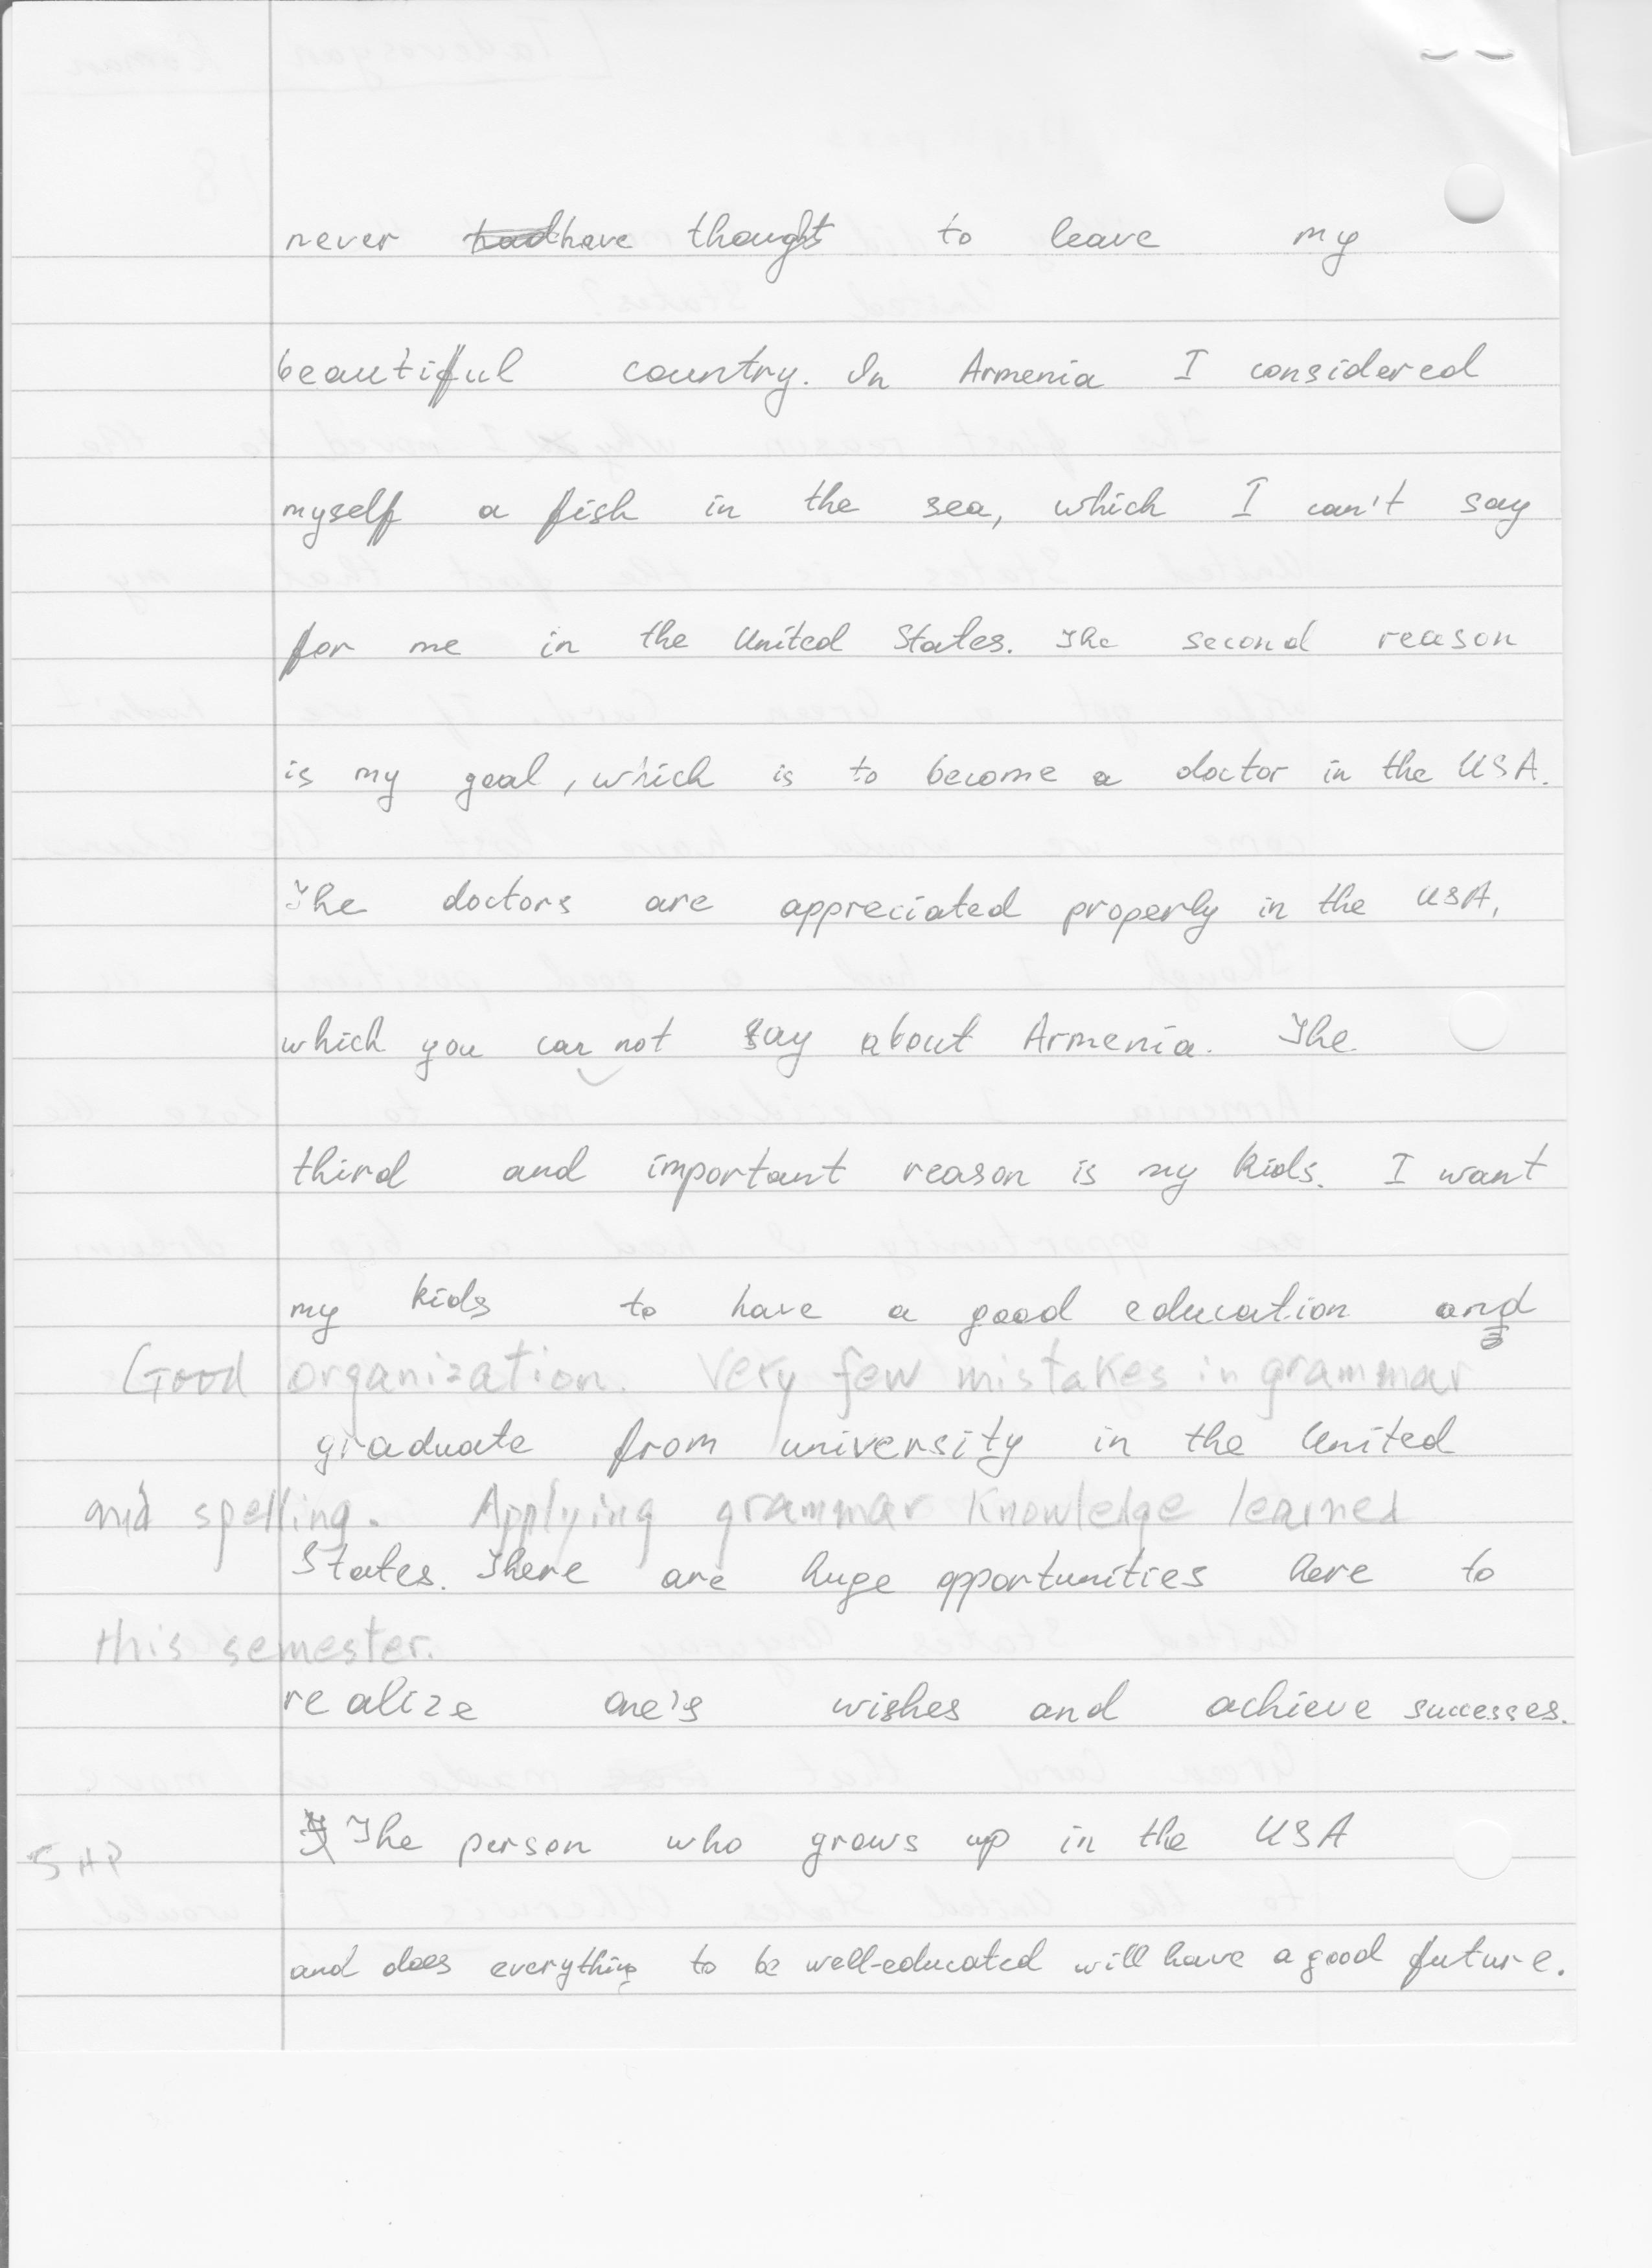 never have thought to leave my
beautiful country. In Armenia I considered
myself a fish in the sea, which I can't say
for me in the United States. The second reason
is my goal, which is to become a doctor in the USA.
The doctors are appreciated properly in the USA,
which you can not say about Armenia. The
third and important reason is my kids. I want
my kids to have a good education and
Good organization. Very few mistakes in grammar
graduate from university in the United
and spelling. Applying grammar knowledge learned
States. There are huge opportunities here to
this semester.
realize one's wishes and achieve successes.
The person who grows up in the USA
and does everything to be well-educated will have a good future.